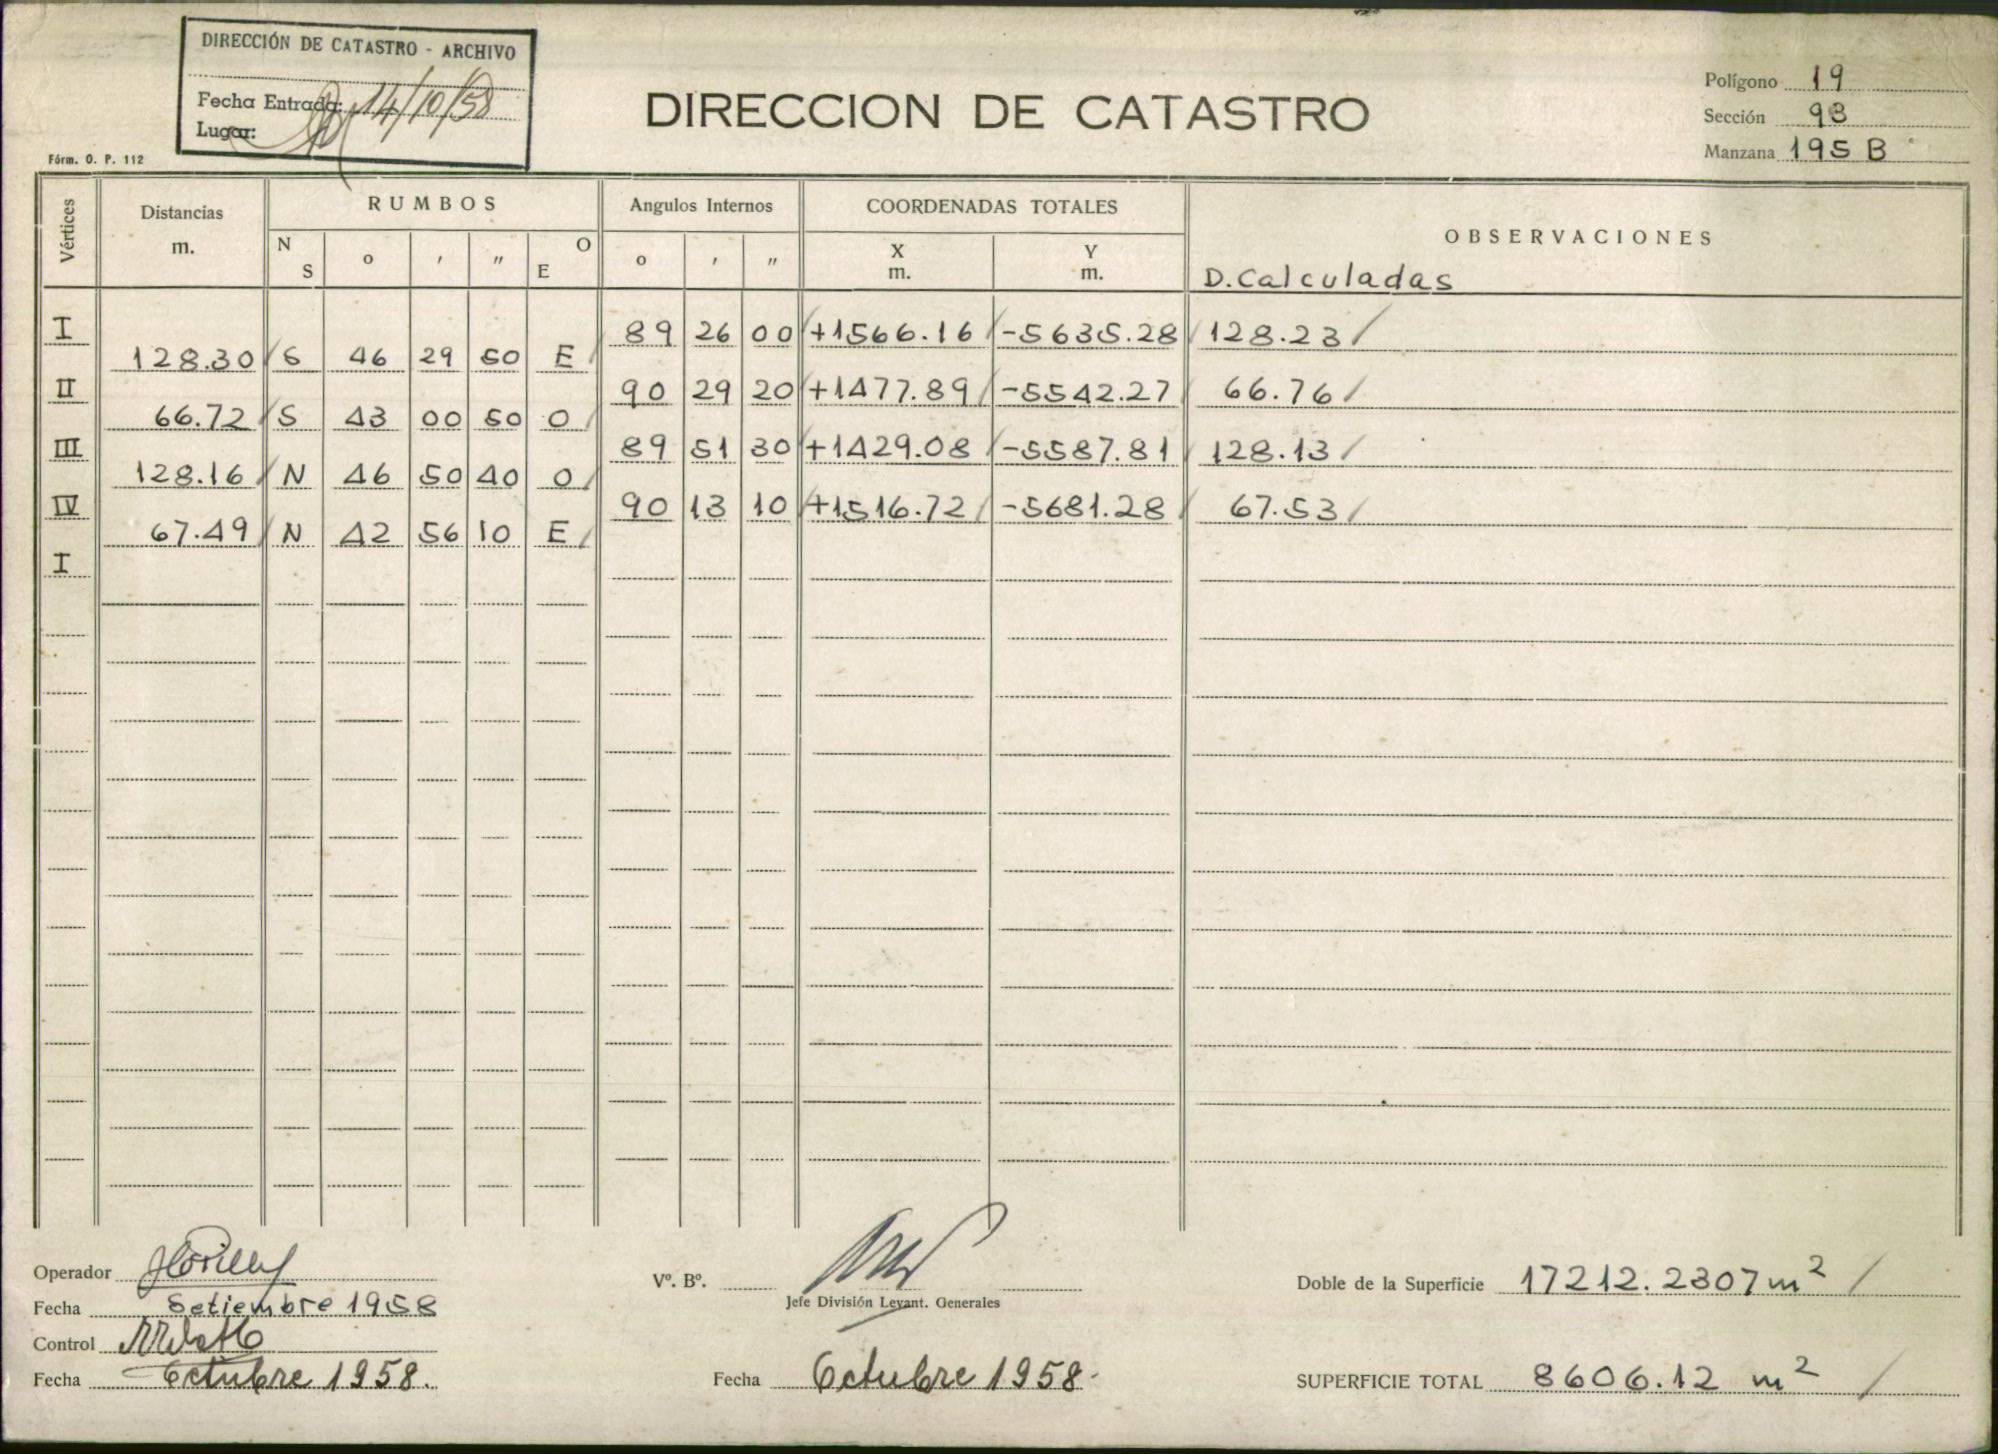 DIRECCIÓN DE CATASTRO - ARCHIVO
Fecha Entrada: 14/10/58
Lugar:
Fórm. O. P. 112
DIRECCION DE CATASTRO
Polígono 19
Sección 93
Manzana 195 B
Vértices
Distancias
m.
RUMBOS
N S
o ' "
O E
Angulos Internos
o ' "
COORDENADAS TOTALES
X
m.
Y
m.
OBSERVACIONES
D. Calculadas
I 89 26 00 +1566.16 -5635.28 128.23
128.30 S 46 29 50 E
II 90 29 20 +1477.89 -5542.27 66.76
66.72 S 43 00 50 O
III 89 51 30 +1429.08 -5587.81 128.13
128.16 N 46 50 40 O
IV 90 13 10 +1516.72 -5681.28 67.53
67.49 N 42 56 10 E
I
Operador
Fecha Setiembre 1958
Control
Fecha Octubre 1958.
Vº. Bº.
Jefe División Levant. Generales
Fecha Octubre 1958.
Doble de la Superficie 17212.2307 m²
SUPERFICIE TOTAL 8606.12 m²